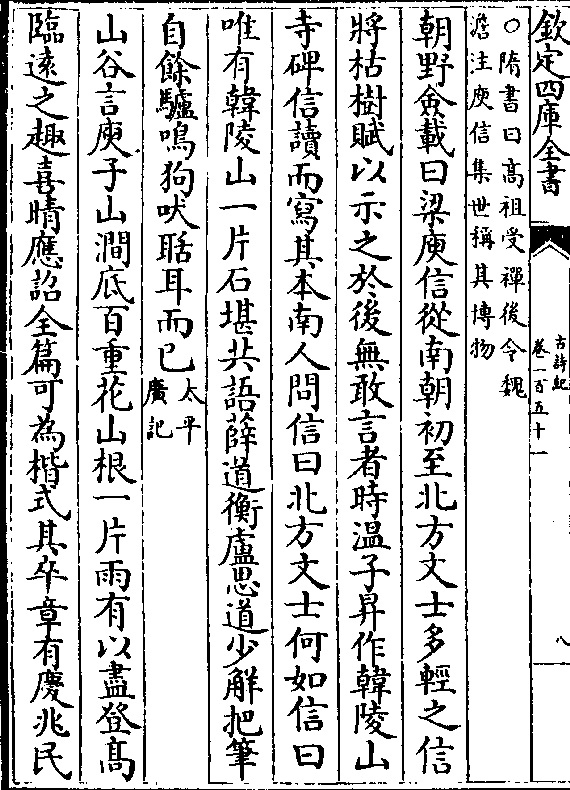 欽定四庫全書
古詩紀
卷一百五十一
八
○隋書曰高祖受禪後令魏
澹注庾信集世稱其博物
朝野僉載曰梁庾信從南朝初至北方文士多輕之信
將枯樹賦以示之於後無敢言者時溫子昇作韓陵山
寺碑信讀而寫其本南人問信曰北方文士何如信曰
唯有韓陵山一片石堪共語薛道衡盧思道少解把筆
自餘驢鳴狗吠聒耳而已
太平
廣記
山谷言庾子山澗底百重花山根一片雨有以盡登高
臨遠之趣喜晴應詔全篇可為楷式其卒章有慶兆民